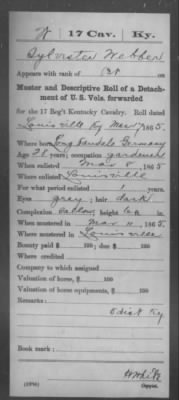 W | 17 Cav. | Ky.
Sylvester Webber
Appears with rank of Pvt on
Muster and Descriptive Roll of a Detach-
ment of U. S. Vols. forwarded
for the 17 Reg't Kentucky Cavalry. Roll dated
Louisville Ky Mar 1865.
Where born Germany
Age 28 years; occupation gardener
When enlisted Mar 8, 1865
Where enlisted Louisville
For what period enlisted 1 years
Eyes gray; hair dark
Complexion ; height ft. in.
When mustered in Mar 11, 1865
Where mustered in Louisville
Bounty paid $ 100; due $ 100
Where credited
Company to which assigned
Valuation of horse, $ 100
Valuation of horse equipments, $ 100
Remarks:
Dist Ky
Book mark:
White
Copyist.